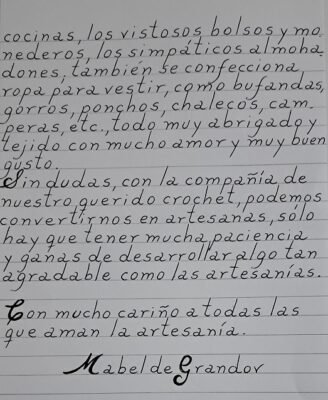 cocinas, los vistosos bolsos y mo.
nederos, los simpáticos almoha.
dones, también se confecciona
ropa para vestir, como bufandas,
gorros, ponchos, chalecos, cam.
peras, etc., todo muy abrigado y
tejido con mucho amor y muy buen
gusto.
Sin dudas, con la compañía de
nuestro querido crochet, podemos
convertirnos en artesanas, sólo
hay que tener mucha paciencia
y ganas de desarrollar algo tan
agradable como las artesanías.
Con mucho cariño a todas las
que aman la artesanía.
Mabel de Grandov